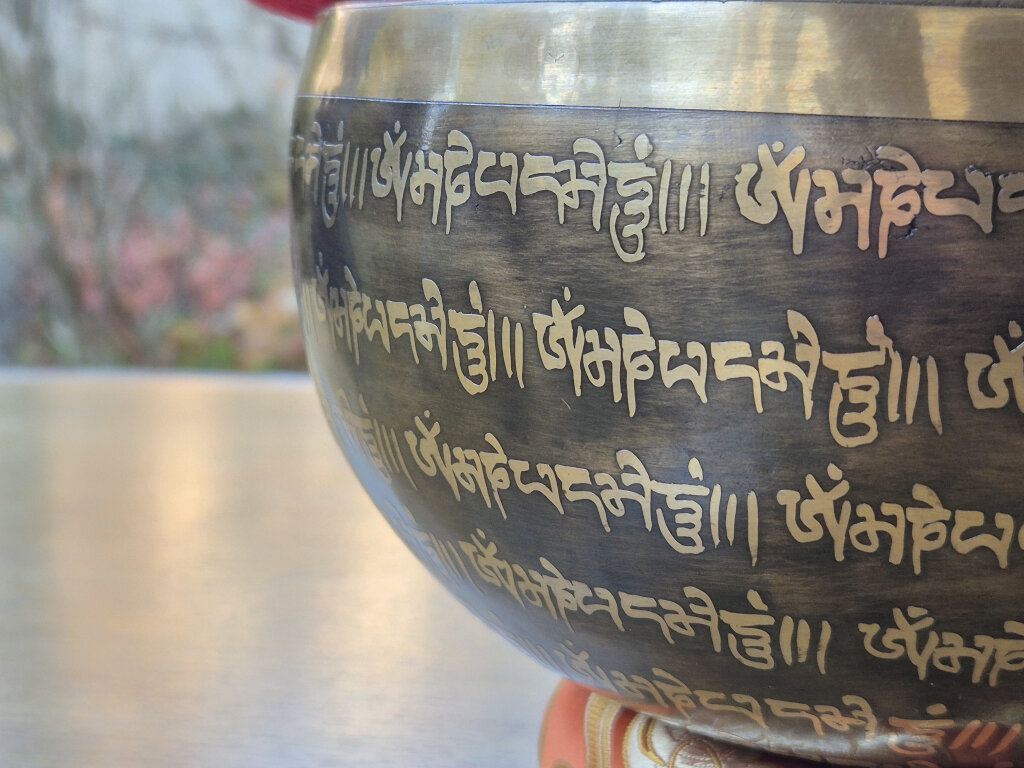 མེཧཱུྃ།།། ཨོཾམཎིཔདམེཧཱུྃ།།། ཨོཾམཎིཔད
ཨོཾམཎིཔདམེཧཱུྃ།།། ཨོཾམཎིཔདམེཧཱུྃ།།། ཨོཾ
ཧཱུྃ།།། ཨོཾམཎིཔདམེཧཱུྃ།།། ཨོཾམཎིཔ
།།། ཨོཾམཎིཔདམེཧཱུྃ།།། ཨོཾམཎི
ཨོཾམཎིཔདམེཧཱུྃ།།།